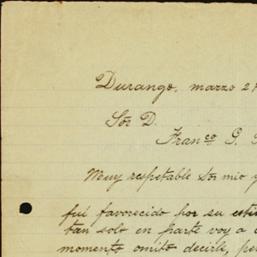 Durango, marzo 2
Sor D.
Franco G.
Muy respetable Sor mio y
fuí favorecido por su
tan solo en parte voy a
momento omito decirle,